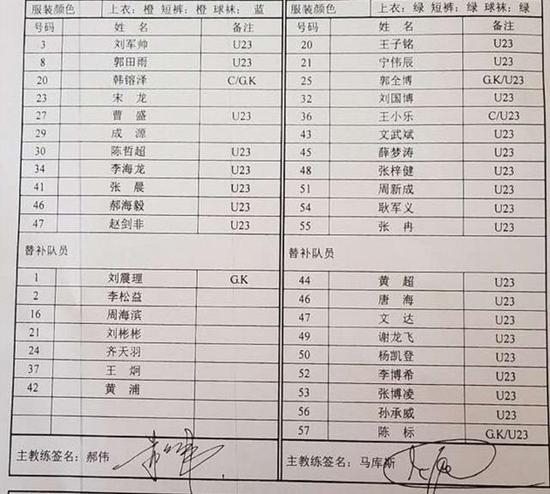 服装颜色 上衣：橙 短裤：橙 球袜： 蓝
号码 姓 名 备注
3 刘军帅 U23
8 郭田雨 U23
20 韩镕泽 C/G.K
23 宋 龙
27 曹 盛 U23
29 成 源
30 陈哲超 U23
34 李海龙 U23
41 张 晨 U23
46 郝海毅 U23
47 赵剑非 U23
替补队员
1 刘震理 G.K
2 李松益
16 周海滨
21 刘彬彬
24 齐天羽
37 王 炯
42 黄 浦
主教练签名：郝伟
服装颜色 上衣：绿 短裤：绿 球袜：绿
号码 姓 名 备注
20 王子铭 U23
21 宁伟辰 U23
25 郭全博 G.K/U23
32 刘国博 U23
36 王小乐 C/U23
43 文武斌 U23
45 薛梦涛 U23
48 张梓健 U23
51 周新成 U23
54 耿军义 U23
55 张 冉 U23
替补队员
44 黄 超 U23
46 唐 海 U23
47 文 达 U23
49 谢龙飞 U23
50 杨凯登 U23
52 李博希 U23
53 张博凌 U23
56 孙承威 U23
57 陈 标 G.K/U23
主教练签名：马库斯